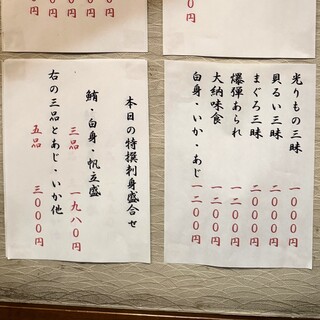 円
円
円
円
円
円
光りもの三昧 一〇〇〇円
貝るい三昧 二〇〇〇円
まぐろ三昧 二〇〇〇円
爆弾あられ 一二〇〇円
大納味食 一二〇〇円
白身・いか・あじ 一二〇〇円
本日の特撰刺身盛合せ
鮪・白身・帆立盛
三品 一九八〇円
右の三品とあじ・いか他
五品 三〇〇〇円